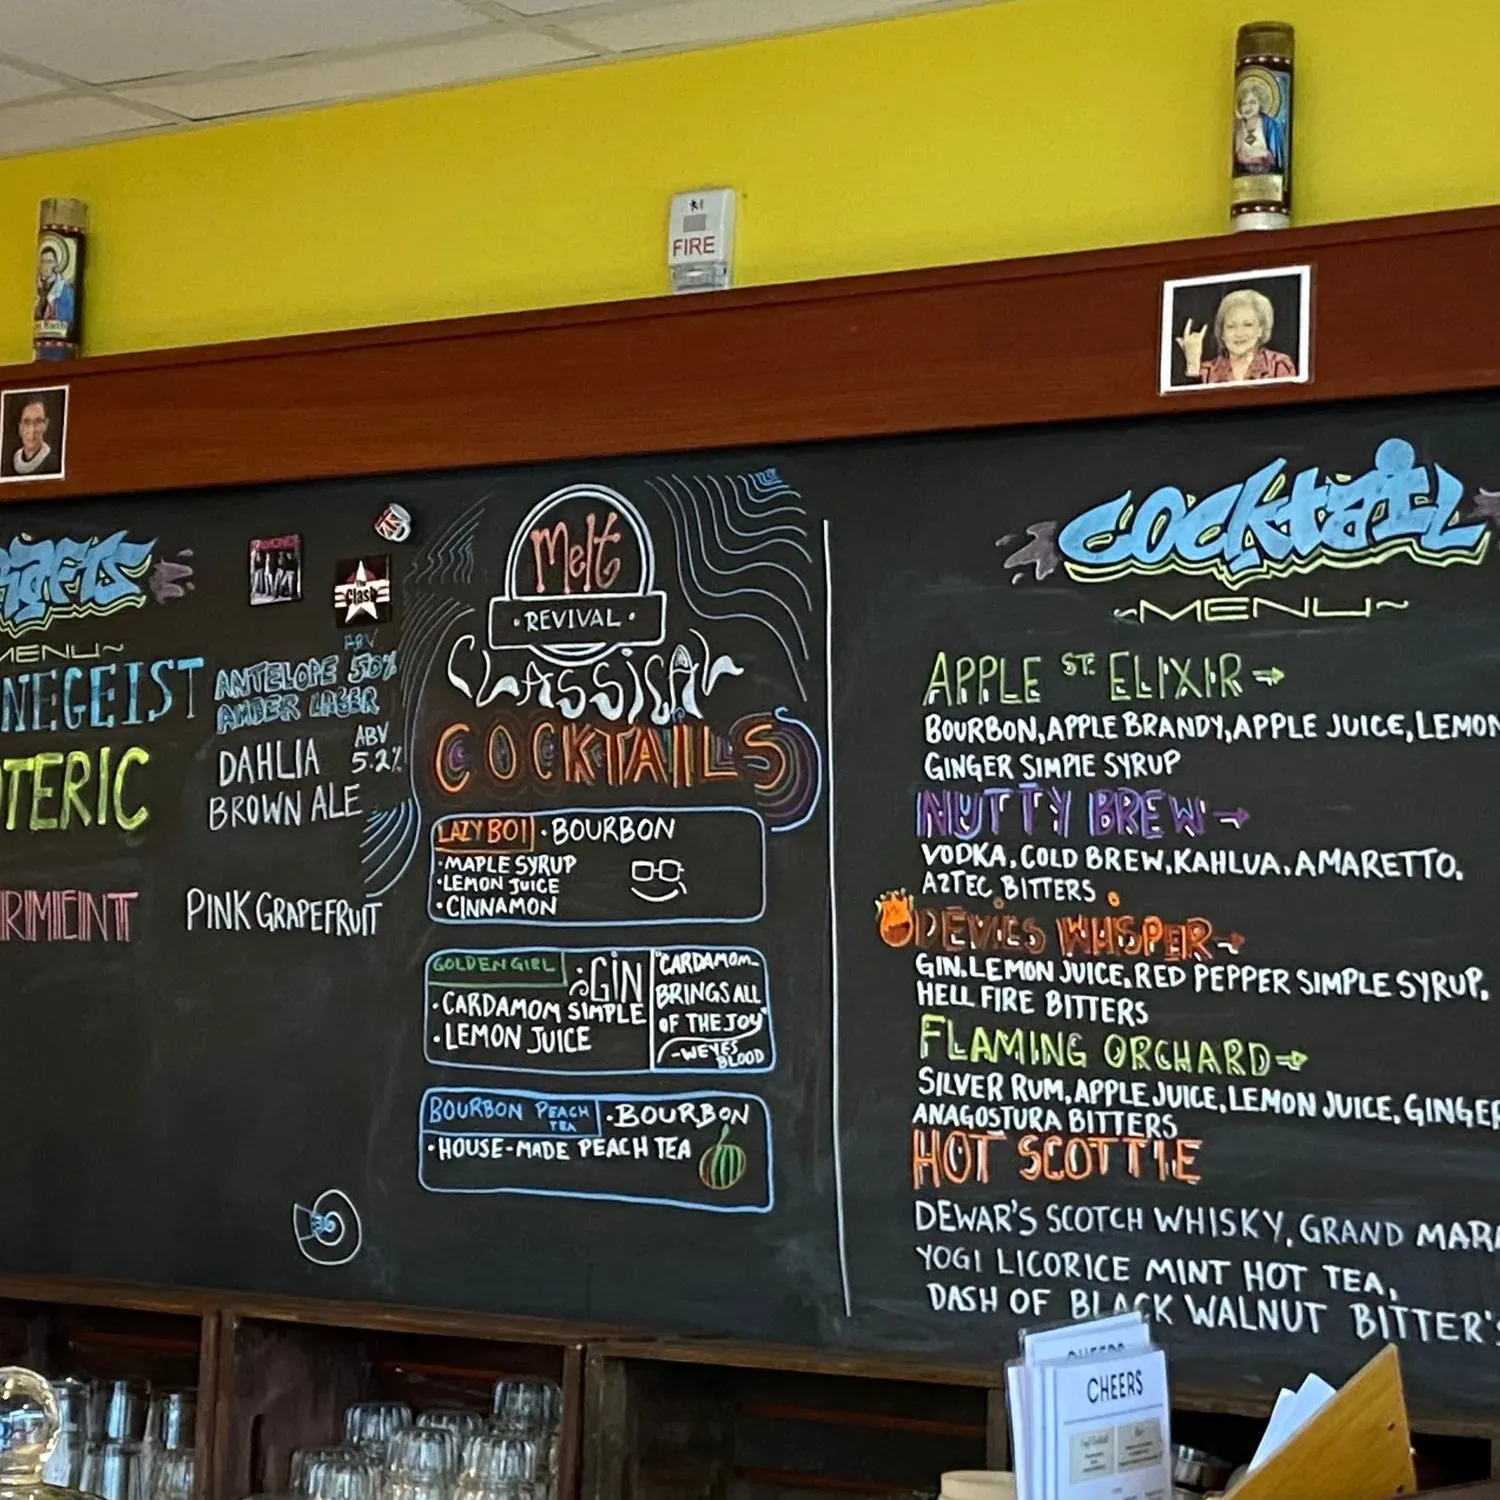 FIRE
MENU~
NEGEIST
TERIC
RMENT
RAMONES
The Clash
ABV
ANTELOPE 5.0%
AMBER LAGER
DAHLIA ABV
5.2%
BROWN ALE
PINK GRAPEFRUIT
Melt
·REVIVAL·
CLASSICAL
COCKTAILS
LAZY BOI ·BOURBON
·MAPLE SYRUP
·LEMON JUICE
·CINNAMON
GOLDEN GIRL :GIN
·CARDAMOM SIMPLE
·LEMON JUICE
"CARDAMOM-
BRINGS ALL
OF THE JOY"
-WEYES
BLOOD
BOURBON PEACH
TEA
·BOURBON
·HOUSE-MADE PEACH TEA
COCKTAIL
~MENU~
APPLE ST. ELIXIR→
BOURBON, APPLE BRANDY, APPLE JUICE, LEMON
GINGER SIMPLE SYRUP
NUTTY BREW→
VODKA, COLD BREW, KAHLUA, AMARETTO,
AZTEC BITTERS
DEVIL'S WHISPER→
GIN, LEMON JUICE, RED PEPPER SIMPLE SYRUP,
HELL FIRE BITTERS
FLAMING ORCHARD→
SILVER RUM, APPLE JUICE, LEMON JUICE, GINGER
ANAGOSTURA BITTERS
HOT SCOTTIE
DEWAR'S SCOTCH WHISKY, GRAND MAR
YOGI LICORICE MINT HOT TEA,
DASH OF BLACK WALNUT BITTER'S
CHEERS
CHEERS